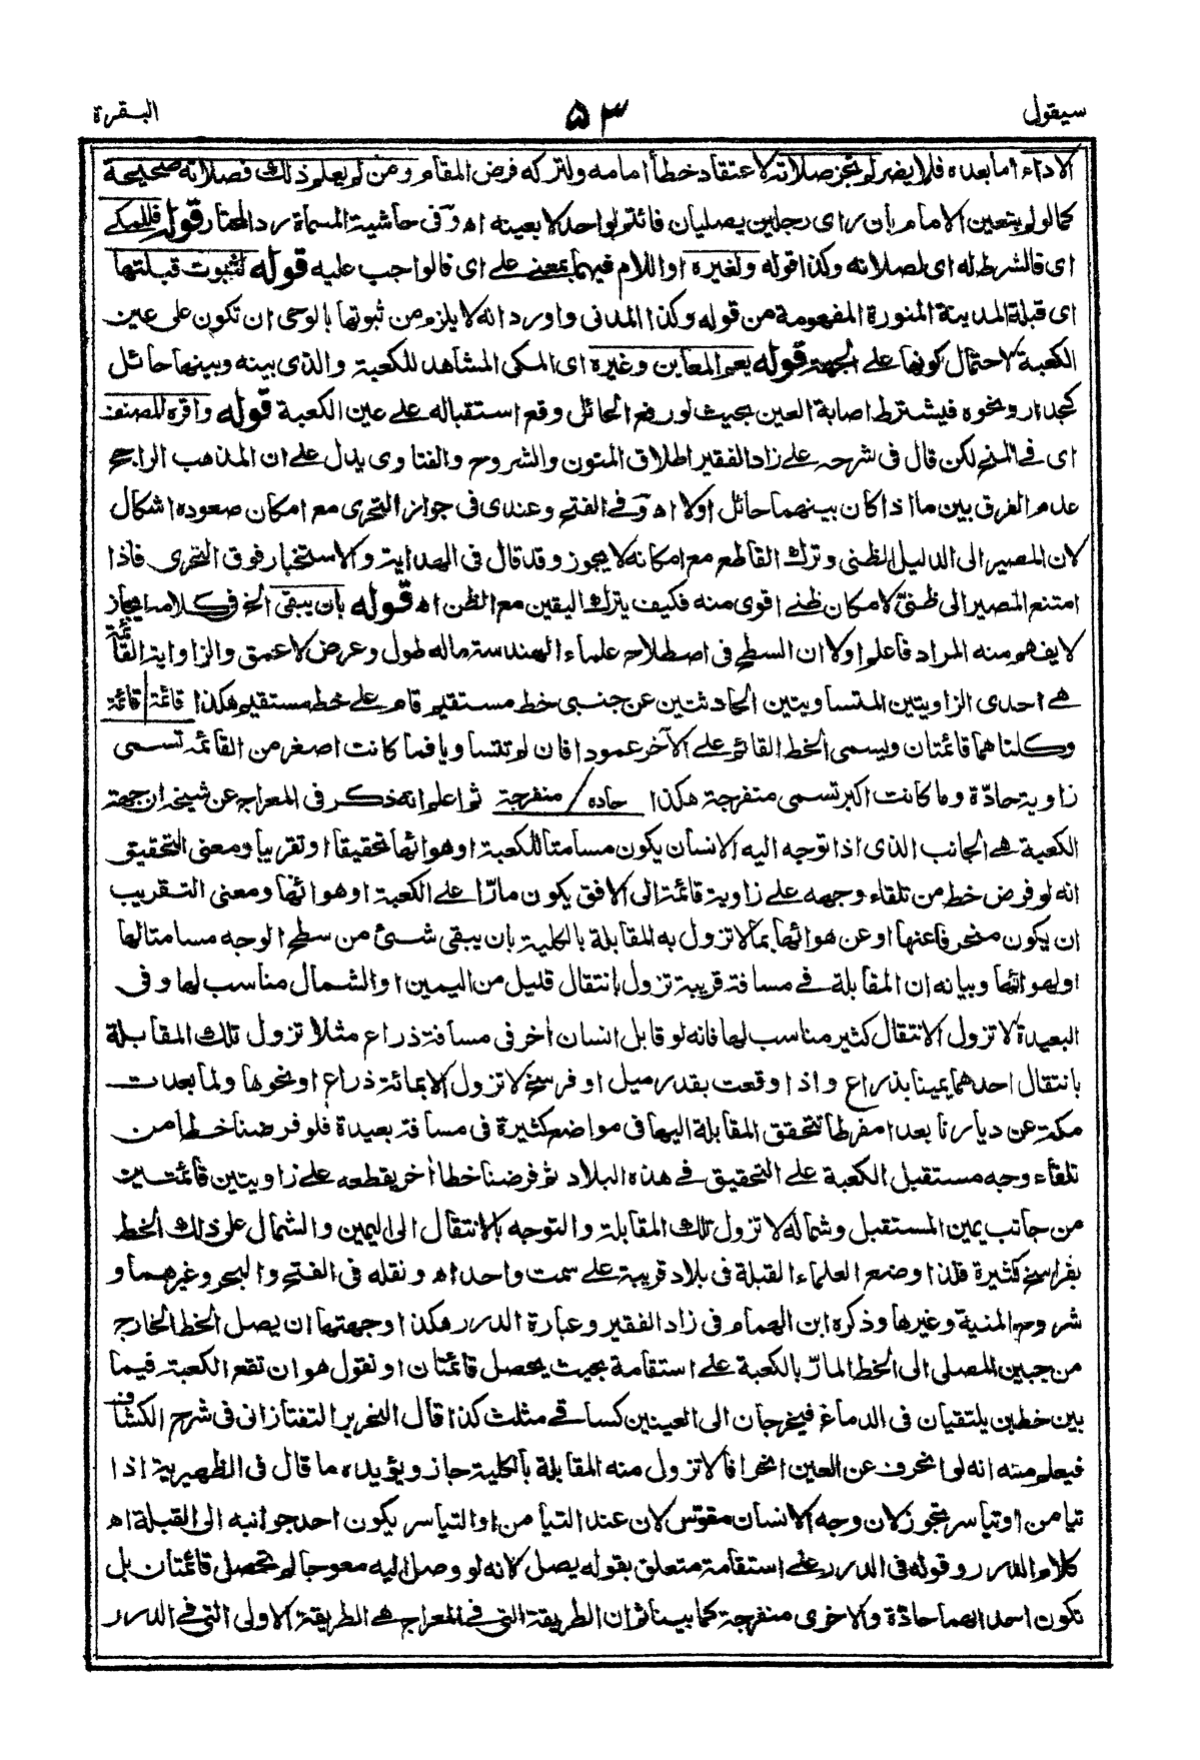 سيقول ٥٣ البقرة
الاداء اما بعده فلا يضر لم تجز صلاته لاعتقاد خطأ امامه ولتركه فرض المقام ومن لم يعلم ذلك فصلاته صحيحة
كما لو لم يتعين الامام بان راى رجلين يصليان فائتم بواحد لا بعينه اه وفى حاشية المسماة رد المحتار قوله فللمكى
اى فالشرط له اى لصلاته وكذا قوله ولغيره او اللام فيهما بمعنى على اى فالواجب عليه قوله لثبوت قبلتها
اى قبلة المدينة المنورة المفهومة من قوله وكذا المدنى واورد انه لا يلزم من ثبوتها بالوحى ان تكون على عين
الكعبة لاحتمال كونها على الجهة قوله يعم المعاين وغيره اى المكى المشاهد للكعبة والذى بينه وبينها حائل
كجدار ونحوه فيشترط اصابة العين بحيث لو رفع الحائل وقع استقباله على عين الكعبة قوله واقره المصنف
اى فى المنح لكن قال فى شرحه على زاد الفقير اطلاق المتون والشروح والفتاوى يدل على ان المذهب الراجح
عدم الفرق بين ما اذا كان بينهما حائل اولا اه وفى الفتح وعندى فى جواز التحرى مع امكان صعوده اشكال
لان المصير الى الدليل الظنى وترك القاطع مع امكانه لا يجوز وقد قال فى الهداية والاستخبار فوق التحرى فاذا
امتنع المصير الى ظنى لامكان ظنى اقوى منه فكيف يترك اليقين مع الظن اه قوله بان يبقى الخ فى كلامه ايجاز
لا يفهم منه المراد فاعلم اولا ان السطح فى اصطلاح علماء الهندسة ماله طول وعرض لا عمق والزاوية القائمة
هى احدى الزاويتين المتساويتين الحادثتين عن جنبى خط مستقيم قام على خط مستقيم هكذا قائمة | قائمة
وكلتاهما قائمتان ويسمى الخط القائم على الآخر عمودا فان لم تتساويا فما كانت اصغر من القائمة تسمى
زاوية حادّة وما كانت اكبر تسمى منفرجة هكذا حاده / منفرجة ثم اعلم انه ذكر فى المعراج عن شيخه ان جهة
الكعبة هى الجانب الذى اذا توجه اليه الانسان يكون مسامتا للكعبة او هوائها تحقيقا او تقريبا ومعنى التحقيق
انه لو فرض خط من تلقاء وجهه على زاوية قائمة الى الافق يكون مارّا على الكعبة او هوائها ومعنى التقريب
ان يكون منحرفا عنها او عن هوائها بما لا تزول به المقابلة بالكلية بان يبقى شئ من سطح الوجه مسامتا لها
او لهوائها وبيانه ان المقابلة فى مسافة قريبة تزول بانتقال قليل من اليمين او الشمال مناسب لها وفى
البعيدة لا تزول الا بانتقال كثير مناسب لها فانه لو قابل انسان اخر فى مسافة ذراع مثلا تزول تلك المقابلة
بانتقال احدهما يمينا بذراع واذا وقعت بقدر ميل او فرسخ لا تزول الا بمائة ذراع او نحوها ولما بعدت
مكة عن ديارنا بعدا مفرطا تتحقق المقابلة اليها فى مواضع كثيرة فى مسافة بعيدة فلو فرضنا خطا من
تلقاء وجه مستقبل الكعبة على التحقيق فى هذه البلاد ثم فرضنا خطا آخر يقطعه على زاويتين قائمتين
من جانب يمين المستقبل وشماله لا تزول تلك المقابلة والتوجه بالانتقال الى اليمين والشمال على ذلك الخط
بفراسخ كثيرة فلذا وضع العلماء القبلة فى بلاد قريبة على سمت واحد اه ونقله فى الفتح والبحر وغيرهما و
شروح المنية وغيرها وذكره ابن الهمام فى زاد الفقير وعبارة الدرر هكذا وجهتها ان يصل الخط الخارج
من جبين المصلى الى الخط المارّ بالكعبة على استقامة بحيث يحصل قائمتان او نقول هو ان تقع الكعبة فيما
بين خطين يلتقيان فى الدماغ فيخرجان الى العينين كساقى مثلث كذا قال النحرير التفتازانى فى شرح الكشاف
فيعلم منه انه لو انحرف عن العين انحرافا لا تزول منه المقابلة بالكلية جاز ويؤيده ما قال فى الظهيرية اذا
تيامن او تياسر تجوز لان وجه الانسان مقوّس لان عند التيامن او التياسر يكون احد جوانبه الى القبلة اه
كلام الدرر وقوله فى الدرر على استقامة متعلق بقوله يصل لانه لو وصل اليه معوجا لم تحصل قائمتان بل
تكون احداهما حادّة والاخرى منفرجة كما بينا ثم ان الطريقة التى فى المعراج هى الطريقة الاولى التى فى الدرر